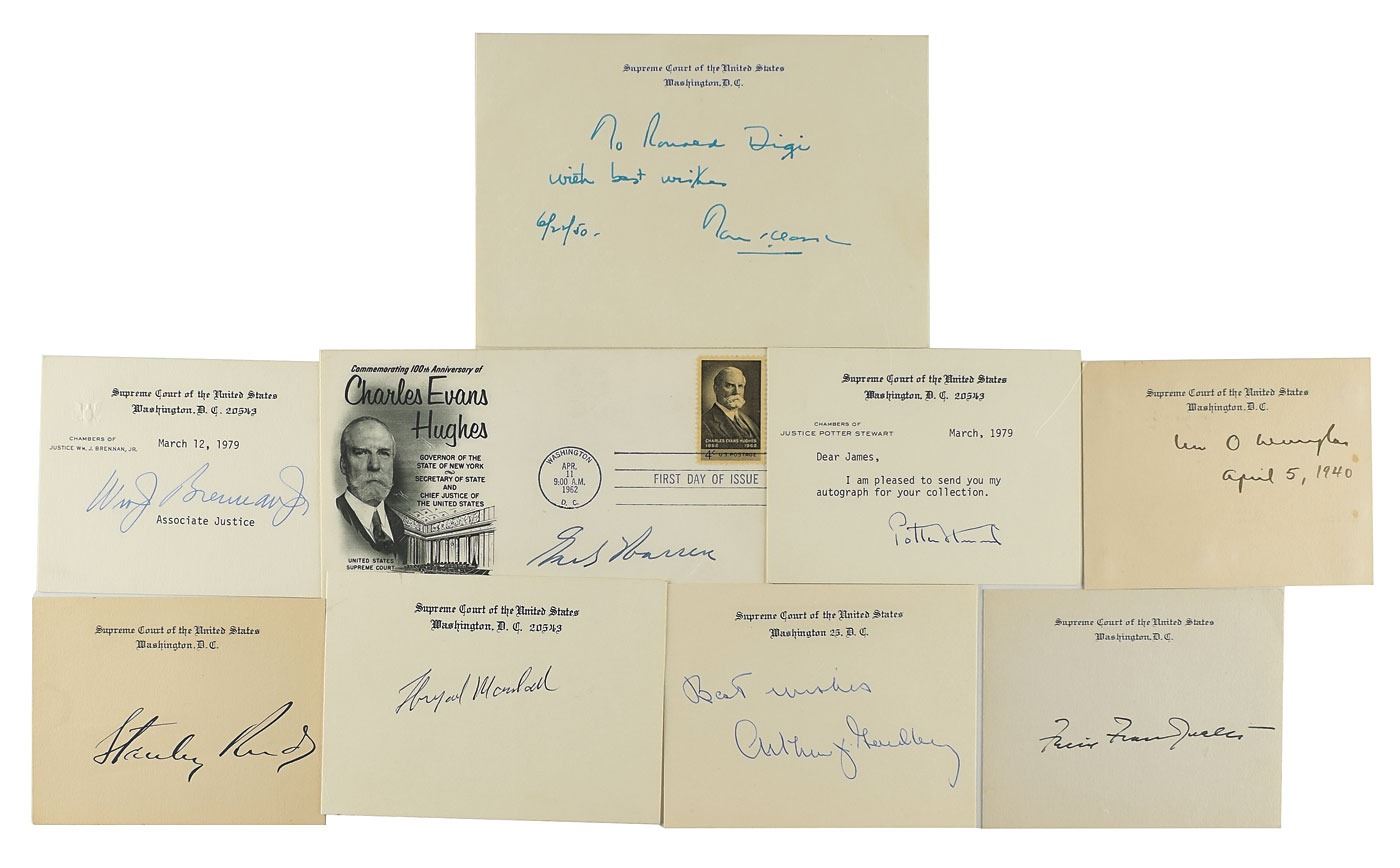 Supreme Court of the United States
Washington, D. C.
To Ronald Digi
with best wishes
6/22/50.
Tom Clark
Supreme Court of the United States
Washington, D. C. 20543
CHAMBERS OF
JUSTICE WM. J. BRENNAN, JR.
March 12, 1979
Wm J Brennan Jr
Associate Justice
Commemorating 100th Anniversary of
Charles Evans
Hughes
GOVERNOR OF THE
STATE OF NEW YORK
SECRETARY OF STATE
AND
CHIEF JUSTICE OF
THE UNITED STATES
UNITED STATES
SUPREME COURT
WASHINGTON
APR.
11
9:00 A.M.
1962
D. C.
CHARLES EVANS HUGHES
1862 1962
4¢ U.S. POSTAGE
FIRST DAY OF ISSUE
Earl Warren
Supreme Court of the United States
Washington, D. C. 20543
CHAMBERS OF
JUSTICE POTTER STEWART
March, 1979
Dear James,
I am pleased to send you my
autograph for your collection.
Potter Stewart
Supreme Court of the United States
Washington, D. C.
Wm O Douglas
April 5, 1940
Supreme Court of the United States
Washington, D. C.
Stanley Reed
Supreme Court of the United States
Washington, D. C. 20543
Thurgood Marshall
Supreme Court of the United States
Washington 25, D. C.
Best wishes
Arthur J. Goldberg
Supreme Court of the United States
Washington, D. C.
Felix Frankfurter